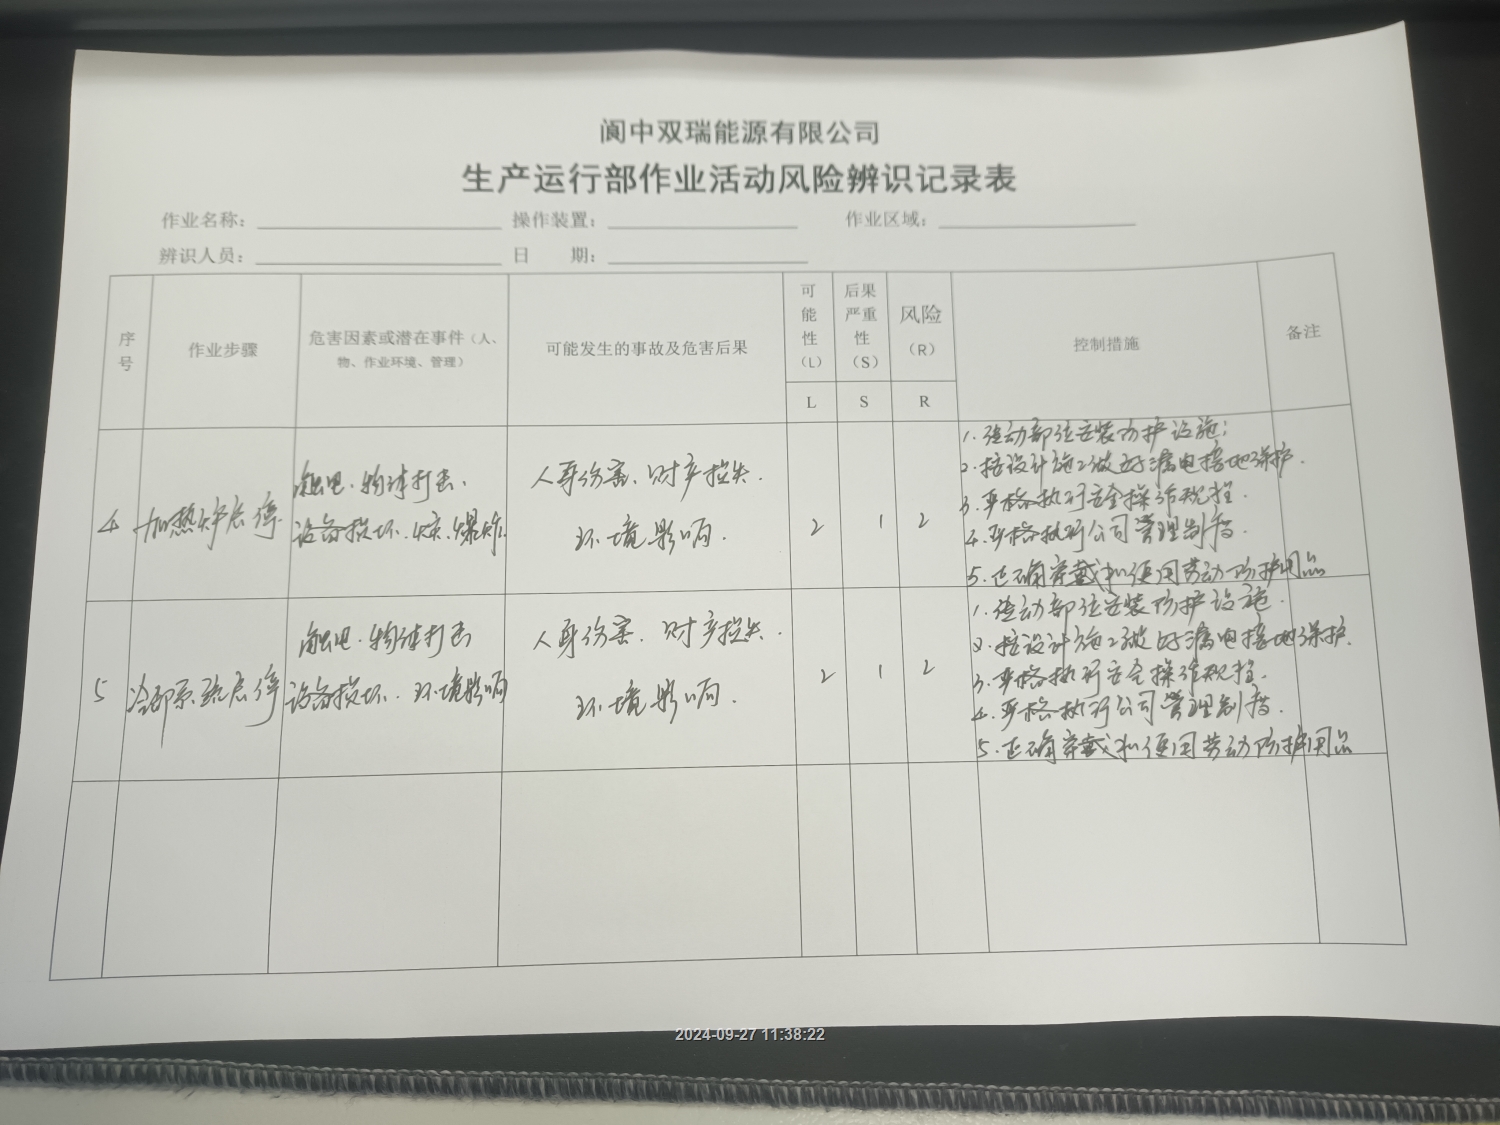 阆中双瑞能源有限公司
生产运行部作业活动风险辨识记录表
作业名称： 操作装置： 作业区域：
辨识人员： 日 期：
序号 作业步骤 危害因素或潜在事件（人、物、作业环境、管理） 可能发生的事故及危害后果 可能性（L） 后果严重性（S） 风险（R） 控制措施 备注
L S R
4 加热炉启停 触电、物体打击、 人身伤害、财产损失、 2 1 2 1.传动部位安装防护设施；
设备损坏、火灾、爆炸 环境影响. 2.按设计施工做好漏电接地保护.
3.严格执行安全操作规程.
4.严格执行公司管理制度.
5.正确穿戴和使用劳动防护用品
5 冷却系统启停 触电、物体打击 人身伤害、财产损失、 2 1 2 1.传动部位安装防护设施.
设备损坏、环境影响 环境影响. 2.按设计施工做好漏电接地保护.
3.严格执行安全操作规程.
4.严格执行公司管理制度.
5.正确穿戴和使用劳动防护用品
2024-09-27 11:38:22